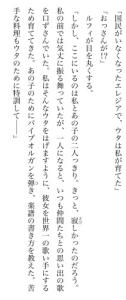 「国民がいなくなったエレジアで、ウタは私が育てた」
「おっさんが!?」
ルフィが目を丸くする。
「しかし、ここにいるのは私とあの子の二人っきり。きっと、寂しかったのだろう。
私の前では気丈に振る舞っていたが、一人になると、いつも仲間たちとの思い出の歌
を口ずさんでいた。私はそんなウタをはげますように、彼女を世界一の歌い手にする
ため育ててきた。あの子のためにパイプオルガンを弾き、楽譜の書き方を教えた。苦
手な料理もウタのために特訓して――」